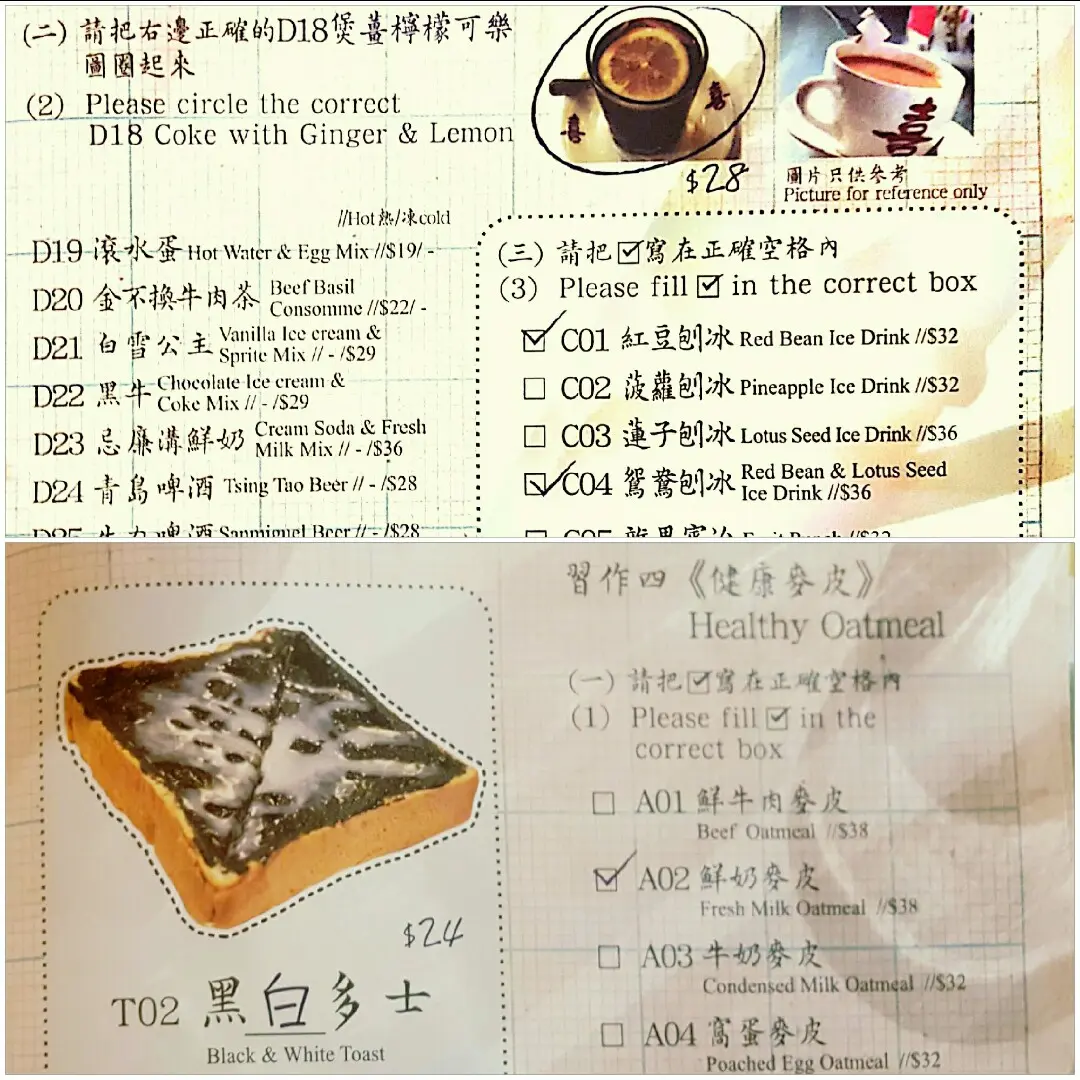 (二) 請把右邊正確的D18煲薑檸檬可樂
圖圈起來
(2) Please circle the correct
D18 Coke with Ginger & Lemon
$28
喜
喜
喜
圖片只供參考
Picture for reference only
//Hot熱/凍cold
D19 滾水蛋 Hot Water & Egg Mix //$19/ -
D20 金不換牛肉茶 Beef Basil
Consomme //$22/ -
D21 白雪公主 Vanilla Ice cream &
Sprite Mix // - /$29
D22 黑牛 Chocolate Ice cream &
Coke Mix // - /$29
D23 忌廉溝鮮奶 Cream Soda & Fresh
Milk Mix // - /$36
D24 青島啤酒 Tsing Tao Beer // - /$28
啤酒 Sanmiguel Beer // - /$28
(三) 請把☑寫在正確空格內
(3) Please fill ☑ in the correct box
☑ C01 紅豆刨冰 Red Bean Ice Drink //$32
☐ C02 菠蘿刨冰 Pineapple Ice Drink //$32
☐ C03 蓮子刨冰 Lotus Seed Ice Drink //$36
☑ C04 鴛鴦刨冰 Red Bean & Lotus Seed
Ice Drink //$36
☐ C05 Fruit Punch //$32
$24
T02 黑白多士
Black & White Toast
習作四《健康麥皮》
Healthy Oatmeal
(一) 請把☑寫在正確空格內
(1) Please fill ☑ in the
correct box
☐ A01 鮮牛肉麥皮
Beef Oatmeal //$38
☑ A02 鮮奶麥皮
Fresh Milk Oatmeal //$38
☐ A03 牛奶麥皮
Condensed Milk Oatmeal //$32
☐ A04 窩蛋麥皮
Poached Egg Oatmeal //$32